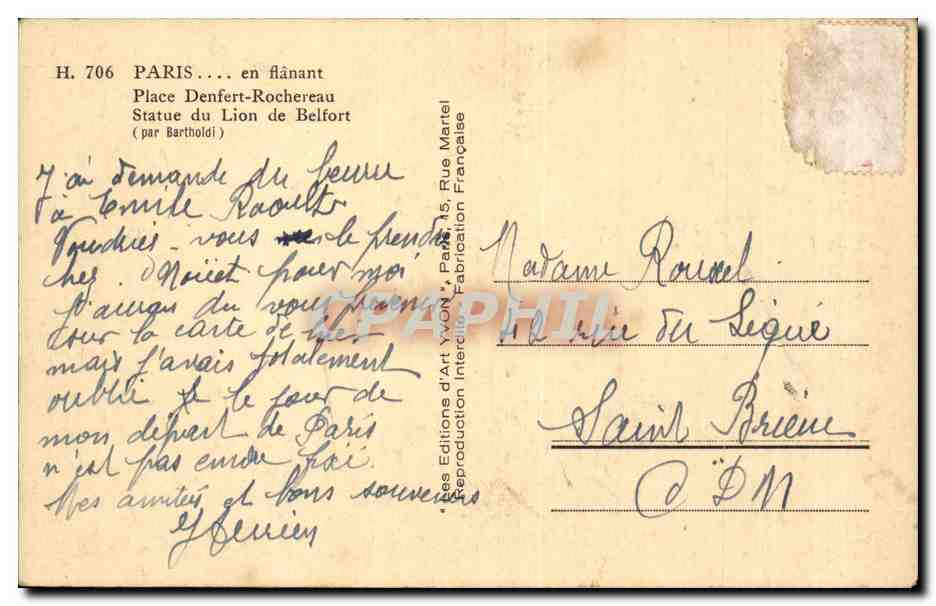 H. 706 PARIS.... en flânant
Place Denfert-Rochereau
Statue du Lion de Belfort
(par Bartholdi)
J'ai demande du beurre
à Emile Raoult
Voudries-vous le prendre
chez Noüet pour moi
J'aurais du vous prévenir
sur la carte de hier
mais j'avais totalement
oublié le jour de
mon départ de Paris
n'est pas encore fixé.
Mes amitiés et bons souvenirs
"Les Editions d'Art YVON", Paris, 15, Rue Martel
Reproduction Interdite Fabrication Française
Madame Rouxel
42 rue du Légué
Saint Brieuc
CDN
CPAPHIL